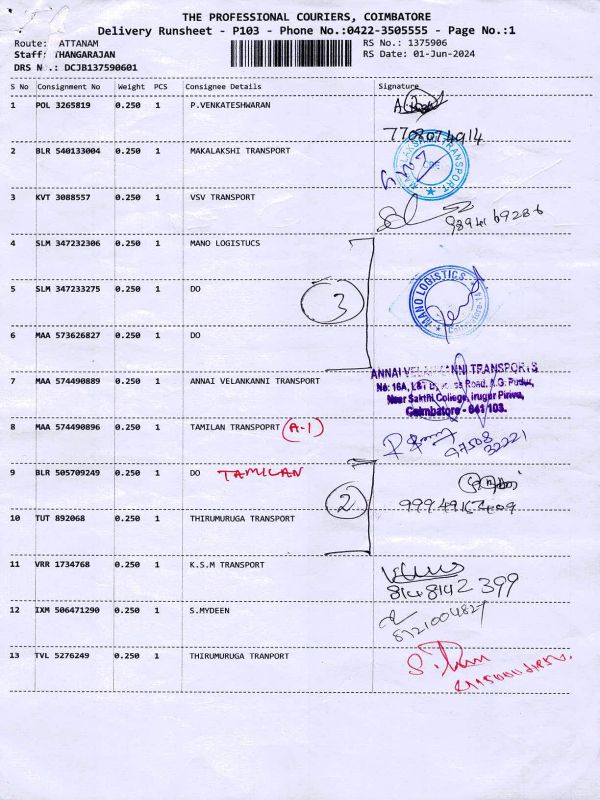 THE PROFESSIONAL COURIERS, COIMBATORE
Delivery Runsheet - P103 - Phone No.:0422-3505555 - Page No.:1
Route: ATTANAM RS No.: 1375906
Staff: THANGARAJAN RS Date: 01-Jun-2024
DRS N..: DCJB137590601
S No Consignment No Weight PCS Consignee Details Signature
1 POL 3265819 0.250 1 P.VENKATESHWARAN
7708074914
2 BLR 540133004 0.250 1 MAKALAKSHI TRANSPORT
3 KVT 3088557 0.250 1 VSV TRANSPORT
9894169286
4 SLM 347232306 0.250 1 MANO LOGISTUCS
5 SLM 347233275 0.250 1 DO 3 MANO LOGISTICS
6 MAA 573626827 0.250 1 DO
7 MAA 574490889 0.250 1 ANNAI VELANKANNI TRANSPORT ANNAI VELANKANNI TRANSPORTS
Near Sakthi College, Irugur Pirivu,
Coimbatore - 641 103.
8 MAA 574490896 0.250 1 TAMILAN TRANSPOPORT (A-1)
97508
32221
9 BLR 505709249 0.250 1 DO TAMILAN
2
10 TUT 892068 0.250 1 THIRUMURUGA TRANSPORT
11 VRR 1734768 0.250 1 K.S.M TRANSPORT
8148142 399
12 IXM 506471290 0.250 1 S.MYDEEN
8121004827
13 TVL 5276249 0.250 1 THIRUMURUGA TRANPORT